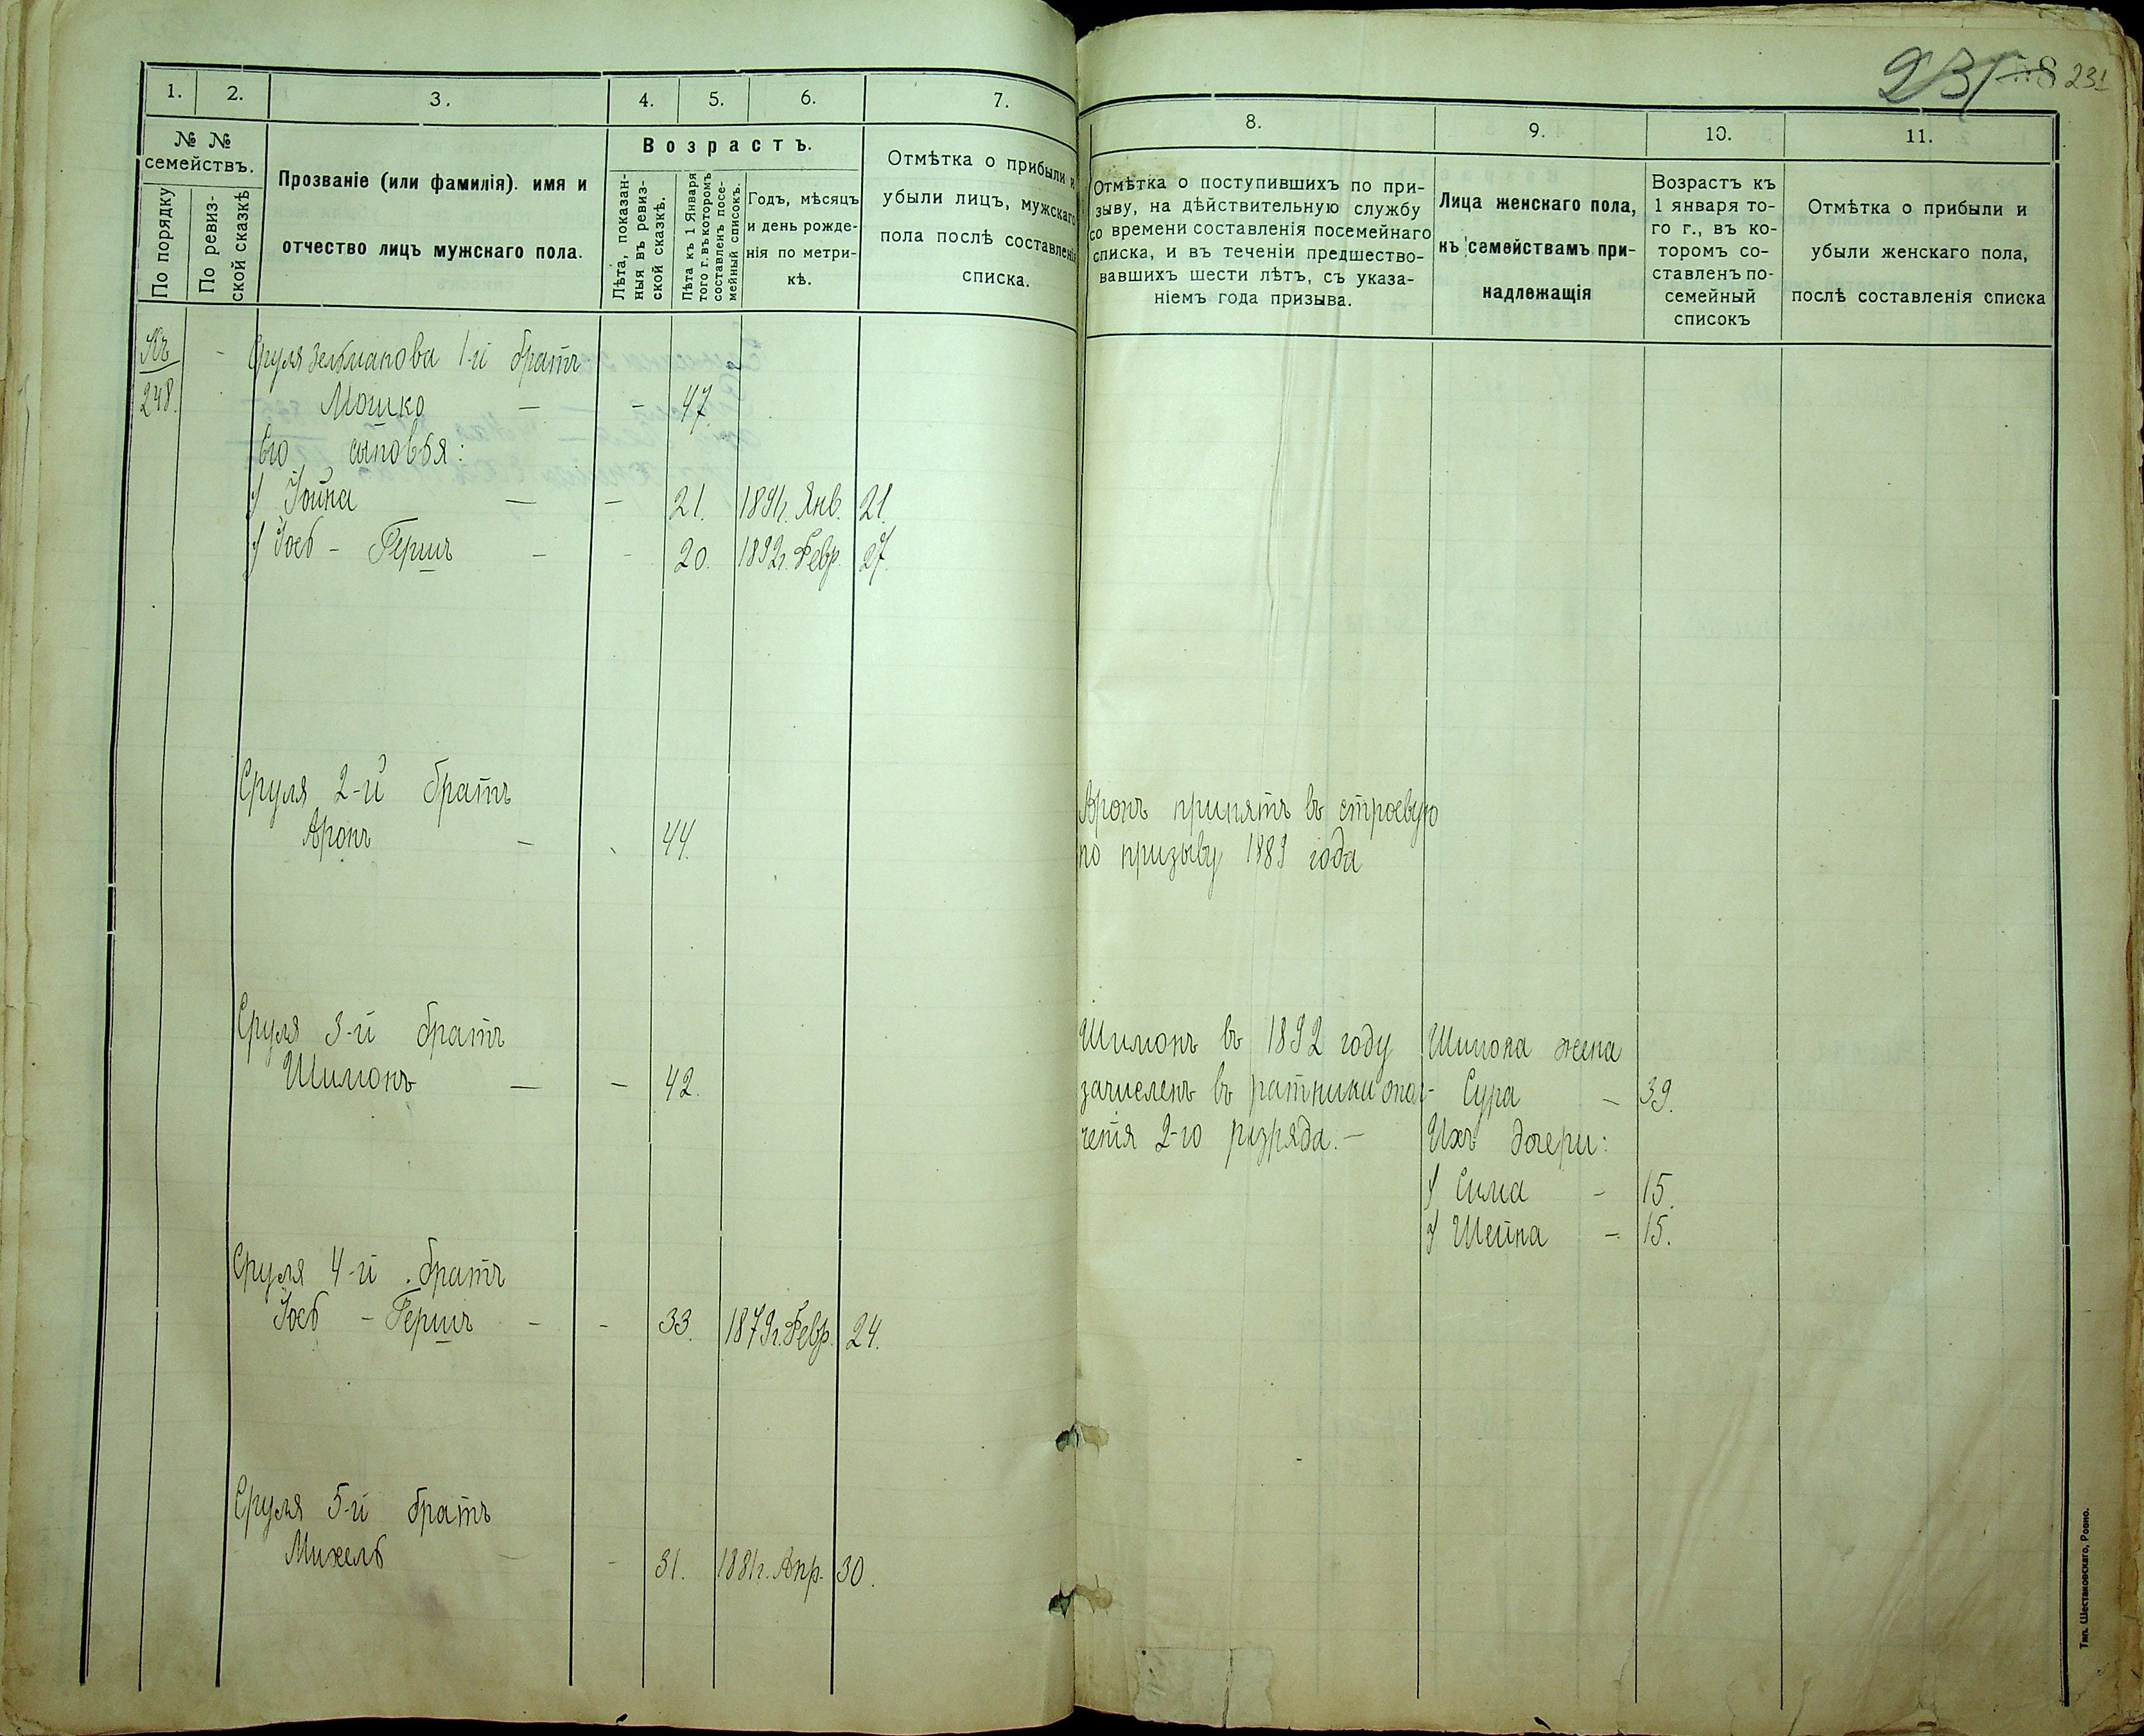 231 231
1. 2. 3. 4. 5. 6. 7.
№ № семействъ.
По порядку
По ревиз-
ской сказкѣ
Прозваніе (или фамилія). имя и
отчество лицъ мужскаго пола.
Возрастъ.
Лѣта, показан-
ныя въ ревиз-
ской сказкѣ.
Лѣта къ 1 Января
того г. въ которомъ
составленъ посе-
мейный списокъ.
Годъ, мѣсяцъ
и день рожде-
нія по метри-
кѣ.
Отмѣтка о прибыли и
убыли лицъ, мужскаго
пола послѣ составленія
списка.
Къ - Сруля Зельманова 1-й братъ
248. Мошко — - 47.
Его сыновья:
1/ Іойна — - 21. 1891г. Янв. 21.
2/ Іось - Гершъ - - 20. 1892г. Февр. 27.
Сруля 2-й братъ
Аронъ - 44.
Сруля 3-й братъ
Шимонъ — - 42.
Сруля 4-й братъ
Іось - Гершъ - - 33. 1879г. Февр. 24.
Сруля 5-й братъ
Михель - - 31. 1881г. Апр. 30.
8. 9. 10. 11.
Отмѣтка о поступившихъ по при-
зыву, на дѣйствительную службу
со времени составленія посемейнаго
списка, и въ теченіи предшество-
вавшихъ шести лѣтъ, съ указа-
ніемъ года призыва.
Лица женскаго пола,
къ семействамъ при-
надлежащія
Возрастъ къ
1 января то-
го г., въ ко-
торомъ со-
ставленъ по-
семейный
списокъ
Отмѣтка о прибыли и
убыли женскаго пола,
послѣ составленія списка
Аронъ принятъ въ строевую
по призыву 1889 года
Шимонъ въ 1892 году
зачисленъ въ ратники опол-
ченія 2-го разряда. —
Шимона жена
Сура - 39.
Ихъ дочери:
1/ Сима - 15.
2/ Шейна - 15.
Тип. Шестаковскаго, Ровно.